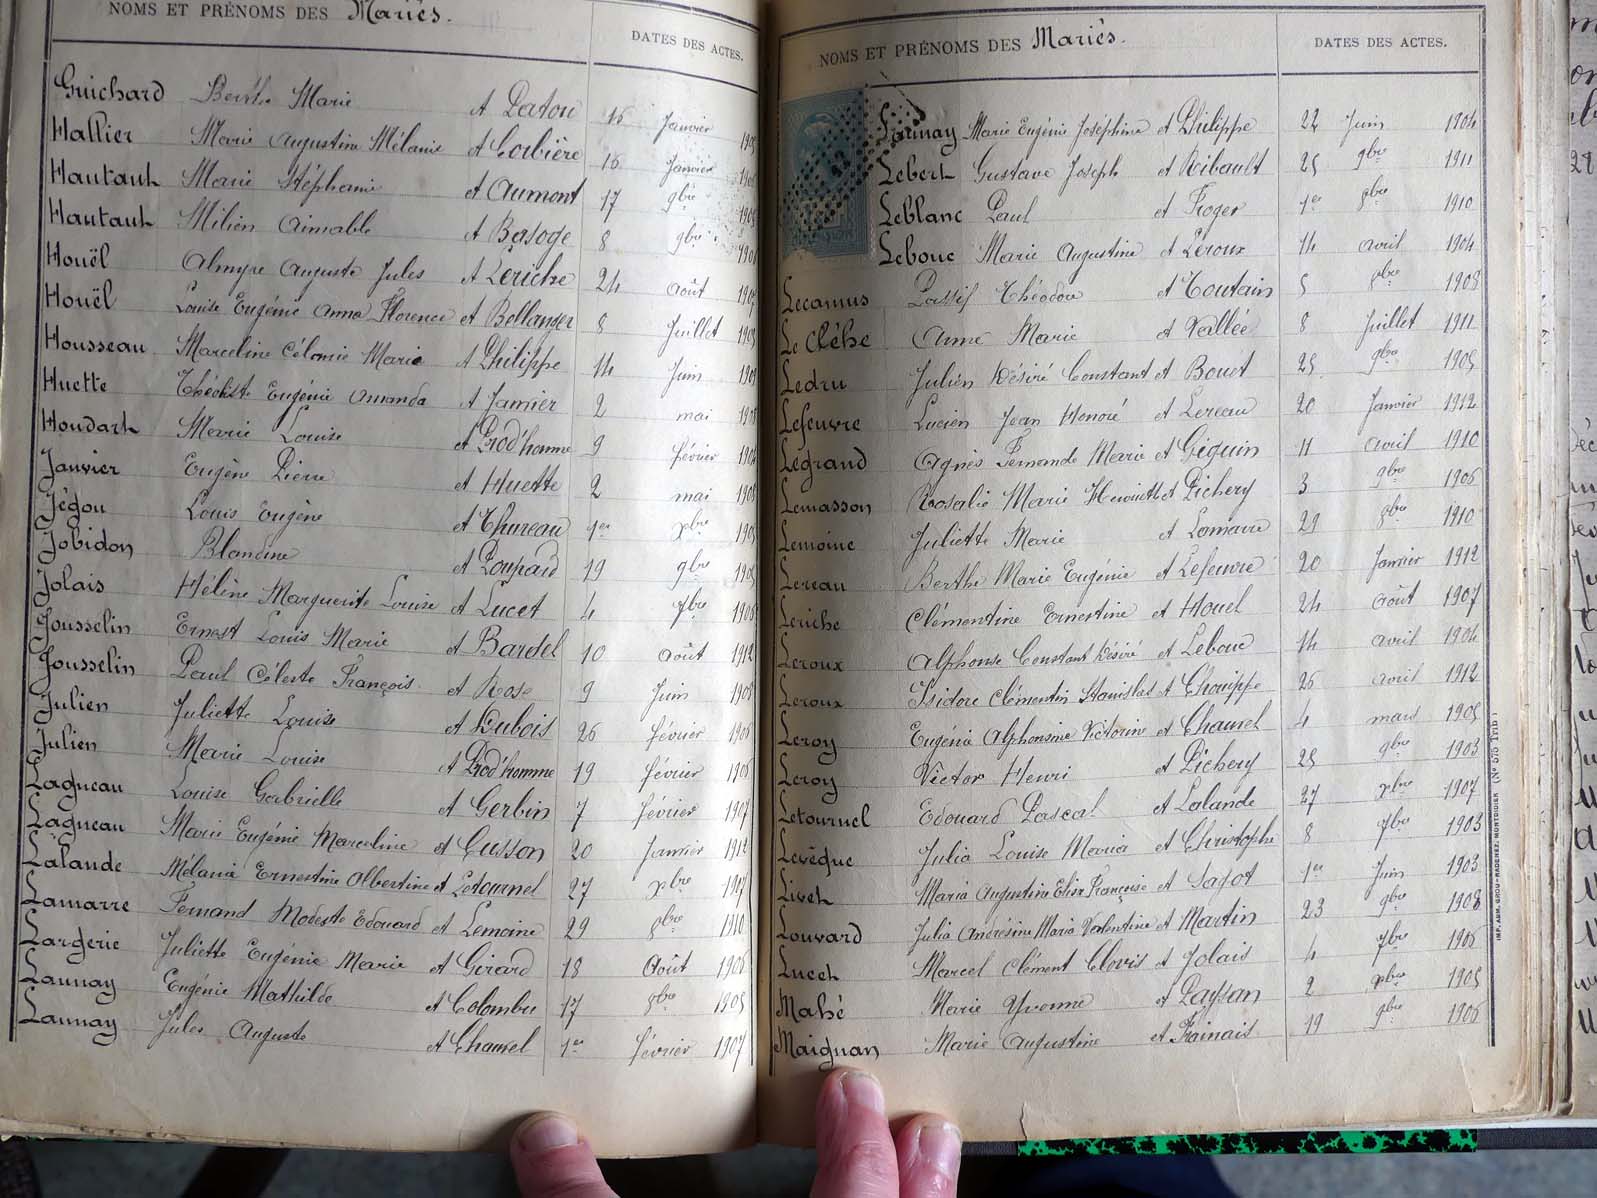 NOMS ET PRÉNOMS DES Mariés. DATES DES ACTES.
Guichard Berthe Marie et Patou 15 Janvier
Hallier Marie Augustine Mélanie et Corbière 15 Janvier
Hautaut Marie Stéphanie et Aumont 17 9bre 1905
Hautaut Milien Aimable et Basoge 8 9bre
Houël Almyre Auguste Jules et Leriche 24 Août 1907
Houël Louise Eugénie Anna Florence et Bellanger 8 Juillet
Housseau Marceline Célanie Marie et Philippe 14 Juin
Huette Théodiste Eugénie Amanda et Janvier 2 mai 1908
Houdart Marie Louise et Prod'homme 9 février 1904
Janvier Eugène Pierre et Huette 2 mai 1908
Jégou Louis Eugène et Thureau 1er xbre 1905
Jobidon Blandine et Poupard 19 9bre 1905
Jolais Hélène Marguerite Louise et Lucet 4 7bre
Jousselin Ernest Louis Marie et Bardel 10 août 1912
Jousselin Paul Céleste François et Rose 9 Juin 1908
Julien Juliette Louise et Dubois 26 février 1906
Julien Marie Louise et Prod'homme 19 février 1906
Lagneau Louise Gabrielle et Gerbin 7 février 1907
Lagneau Marie Eugénie Marceline et Cusson 20 Janvier 1912
Lalande Mélania Ernestine Albertine et Letournel 27 xbre 1907
Lamarre Fernand Modeste Edouard et Lemoine 29 8bre 1910
Largerie Juliette Eugénie Marie et Girard 18 Août 1906
Launay Eugénie Mathilde et Colombu 17 8bre 1905
Launay Jules Auguste et Chaurel 1er février 1907
NOMS ET PRÉNOMS DES Mariés. DATES DES ACTES.
Launay Marie Eugénie Joséphine et Philippe 22 Juin 1904
Lebert Gustave Joseph et Reibault 25 9bre 1911
Leblanc Paul et Froger 1er 8bre 1910
Lebouc Marie Augustine et Leroux 14 avril 1904
Lecamus Passif Théodore et Toutain 5 8bre 1908
Le Clèhe Anne Marie et Vallée 8 Juillet 1911
Ledru Julien Désiré Constant et Bouet 25 9bre 1905
Lefeuvre Lucien Jean Honoré et Lereau 20 Janvier 1912
Legrand Agnès Fernande Marie et Géguin 11 avril 1910
Lemasson Rosalie Marie et Pichery 3 9bre 1906
Lemoine Juliette Marie et Lamarre 29 8bre 1910
Lereau Berthe Marie Eugénie et Lefeuvre 20 Janvier 1912
Leriche Clémentine Ernestine et Houel 24 août 1907
Leroux Alphonse Constant Désiré et Lebouc 14 avril 1904
Leroux Isidore Clémentin Stanislas et Chouippe 26 avril 1912
Leroy Eugénia Alphonsine Victorine et Chaurel 4 mars 1905
Leroy Victor Henri et Pichery 25 9bre 1903
Letournel Edouard Pascal et Lalande 27 xbre 1907
Levêque Julia Louise Maria et Christophe 8 7bre 1903
Livet Maria Augustine Elisa Françoise et Sagot 1er Juin 1903
Louvard Julia Andrésine Maria Valentine et Martin 23 9bre 1908
Lucet Marcel Clément Clovis et Jolais 4 7bre 1906
Mahé Marie Yvonne et Paysan 2 xbre 1905
Maignan Marie Augustine et Frainais 19 9bre 1906
IMP. ADM. GROU-RADENEZ, MONTDIDIER (N° 575 TRIB.)